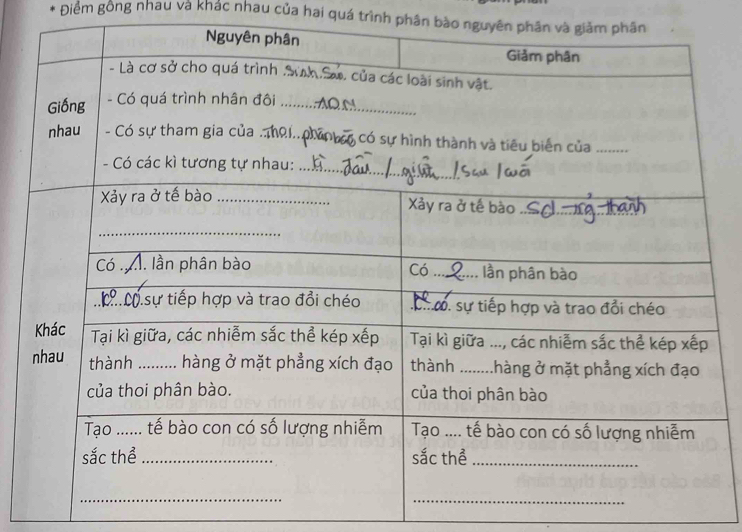 * Điểm gông nhau và khác nhau của hai quá trình phân bào nguyên phân và giảm phân
Nguyên phân
Giảm phân
- Là cơ sở cho quá trình sinh sản của các loài sinh vật.
Giống nhau
- Có quá trình nhân đôi ........ADN................
- Có sự tham gia của ..thoi..phân bào có sự hình thành và tiêu biến của ........
- Có các kì tương tự nhau: ....kì.....đầu..../..giữa../sau /cuối
Xảy ra ở tế bào ........................
Xảy ra ở tế bào ...sd...ng...thành
Có ..1.. lần phân bào
Có ....2.... lần phân bào
..ko..có.sự tiếp hợp và trao đổi chéo
có. sự tiếp hợp và trao đổi chéo
Khác nhau
Tại kì giữa, các nhiễm sắc thể kép xếp
thành ......... hàng ở mặt phẳng xích đạo
của thoi phân bào.
Tại kì giữa ..., các nhiễm sắc thể kép xếp
thành ........hàng ở mặt phẳng xích đạo
của thoi phân bào
Tạo ...... tế bào con có số lượng nhiễm
sắc thể ........................
Tạo .... tế bào con có số lượng nhiễm
sắc thể ........................